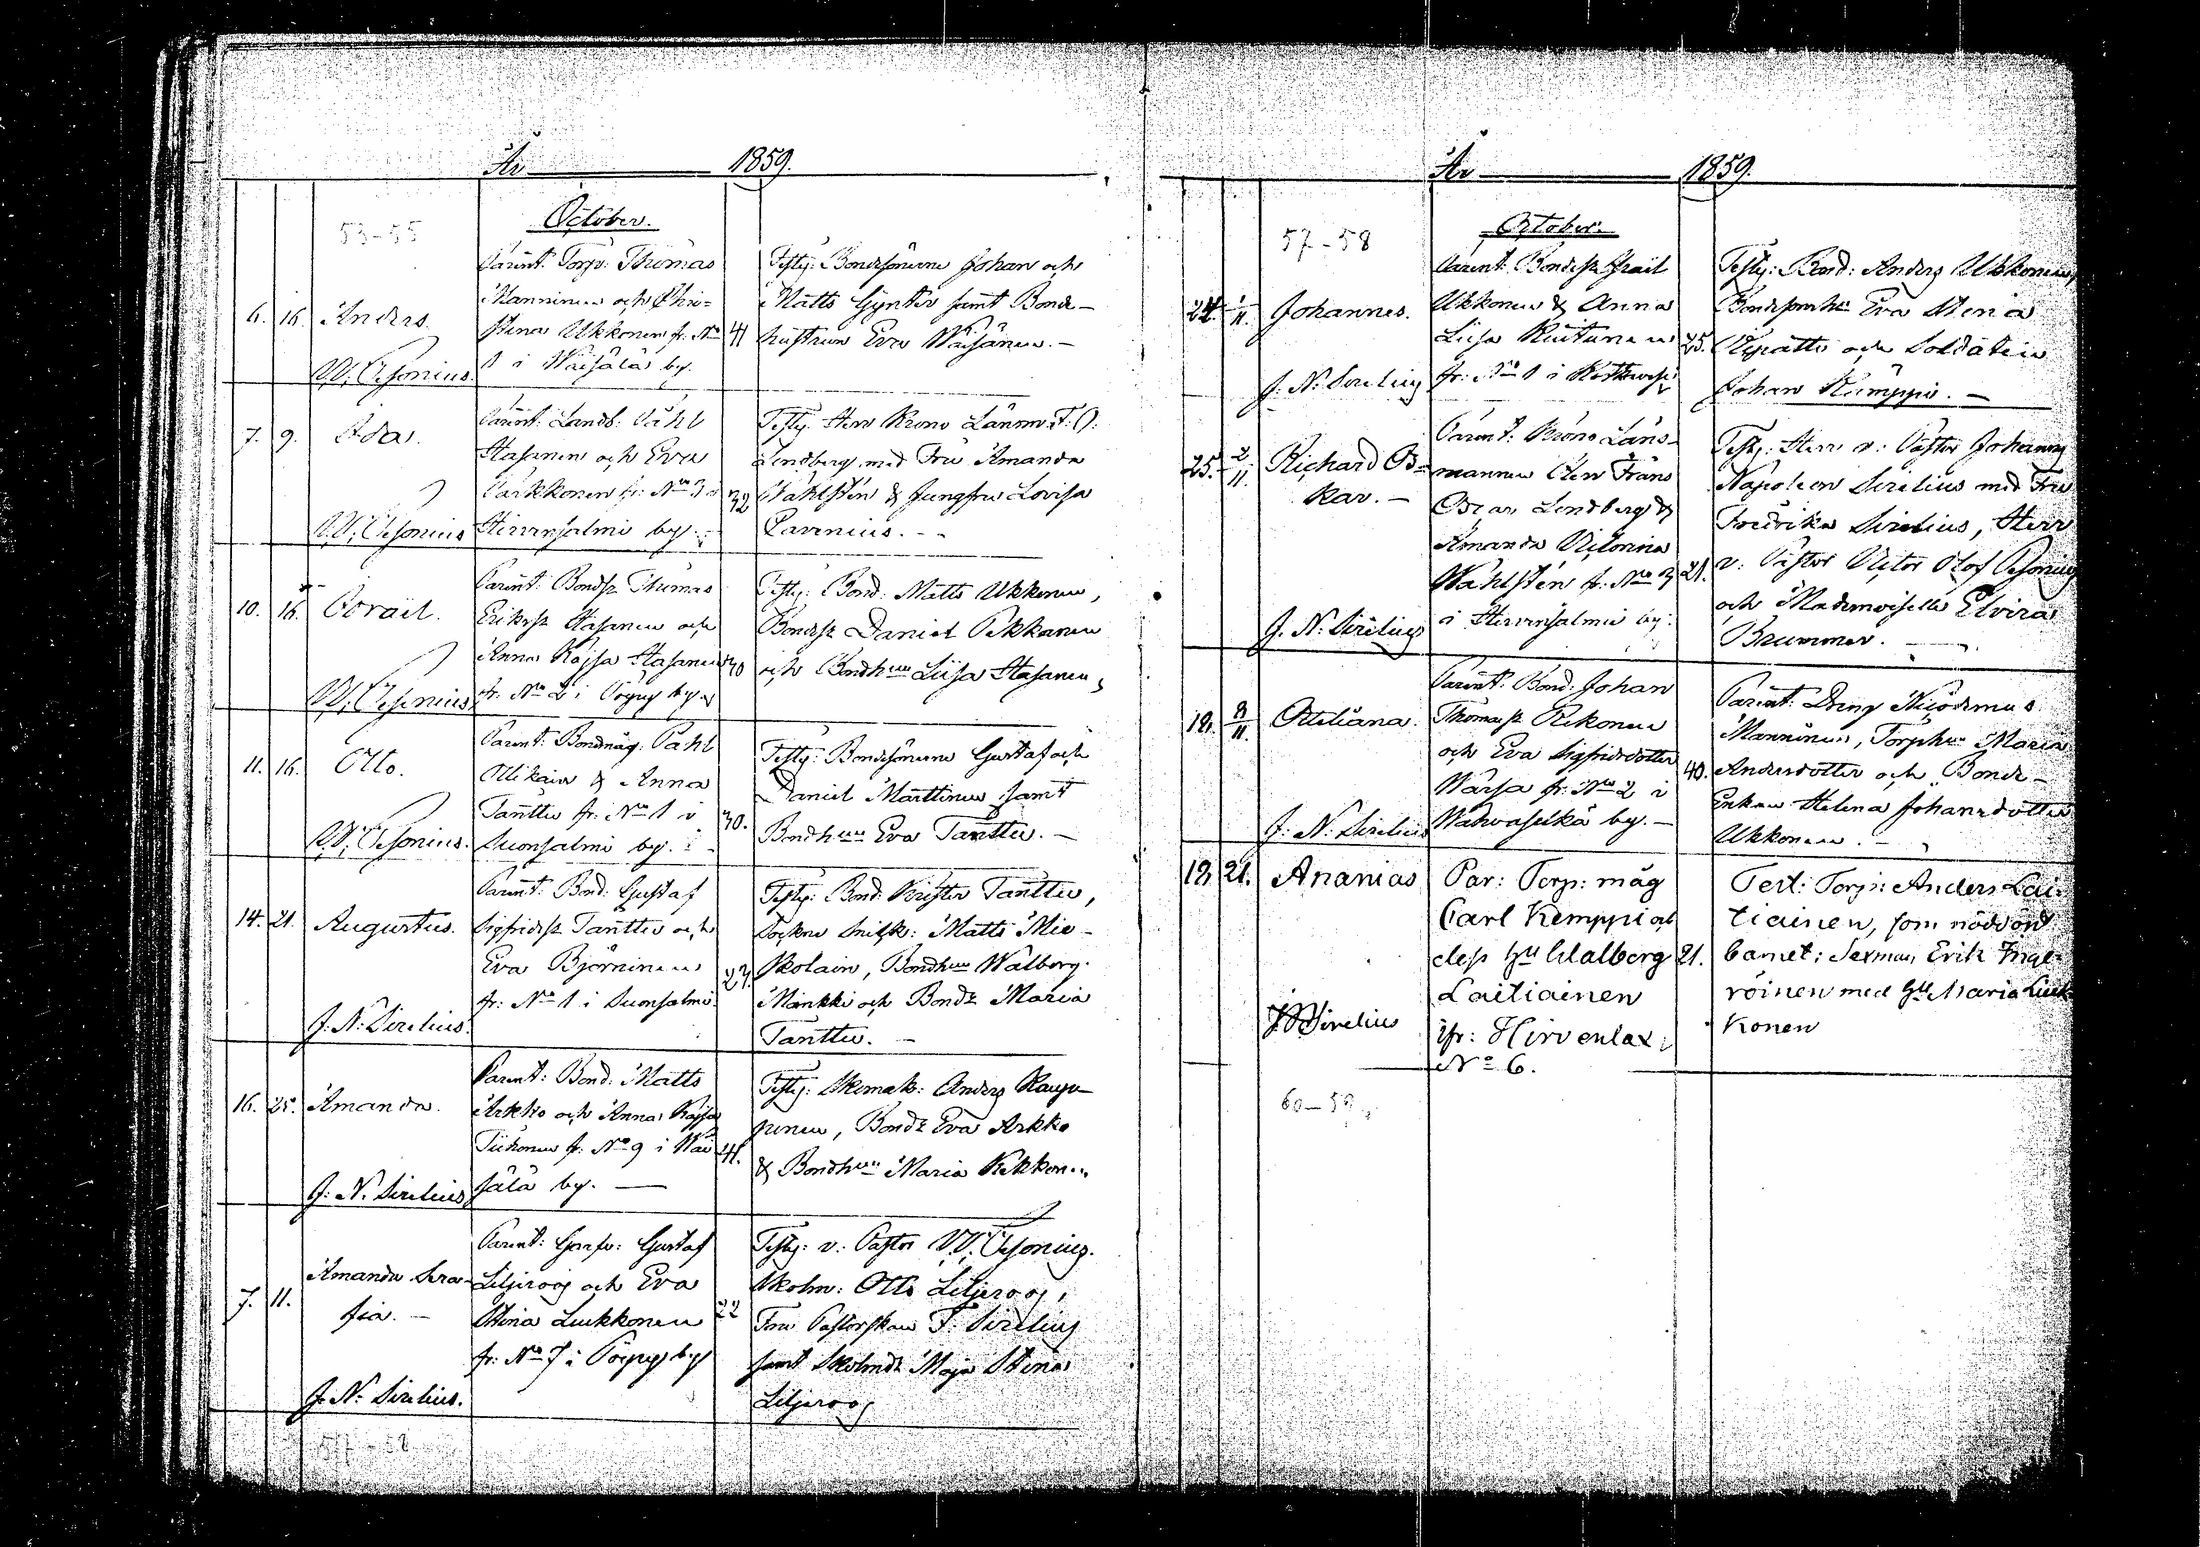 År 1859.
53-55
October.
6. 16. Anders.
Parent: Torp: Thomas
Manninen och Chri=
stina Ukkonen fr. No
1 i Waisälä by.
41
Testy: Bondesönerne Johan och
Matts Gynter samt Bonde-
hustrun Eva Waisänen. -
7. 9. Ida.
Parent: Landb: Påhl
Hasanen och Eva
Parkkonen fr: No 3 i
Hirvensalmi by.
32
Testy: Herr Krono Länsm. F. O.
Lindberg med Fru Amanda
Wahlstén & Jungfru Lovisa
Pavenius. -
10. 16. Israel.
Parent: Bondes: Thomas
Eriksn Hasanen och
Anna Kajsa Hasanen
fr. No 2 i by.
40
Testy: Bond: Matts Ukkonen,
Bondes Daniel Pekkanen
och Bondhun Liisa Hasanen,
11. 16. Otto.
Parent: Bondmåg: Påhl
Ollikain & Anna
Tanttu fr: No 1 i
Suonsalmi by.
30.
Testy: Bondesönerne Gustaf och
Daniel Marttinen samt
Bondhun Eva Tanttu. -
14. 21. Augustus.
J: N: Sirelius.
Parent: Bond: Gustaf
Sigfridsn Tanttu och
Eva Björninen
fr: No 1 i Suonsalmi
27.
Testy: Bond: Krister Tanttu,
Sockne Snick: Matts Mie-
skolain, Bondhun Walborg
Minkki och Bondr Maria
Tanttu. -
16. 25. Amanda.
J: N: Sirelius
Parent: Bond: Matts
Arkko och Anna Kajsa
Tiihonen fr: No 9 i Wai
sälä by. -
41.
Testy: Skomak: Anders Kaup-
pinen, Bondr Eva Arkko
& Bondhun Maria Kekkonen
7. 11. Amanda Sera-
fia. -
J: N: Sirelius.
Parent: Gustaf
Liljeroos och Eva
Stina Luukkonen
fr: No 7 i by
22
Testy: v: Pastor
Skolm: Otto Liljeroos,
Fru Pastorskan F: Sirelius
samt Maja Stina
Liljeroos
57-58
År 1859.
57-58
October.
24. 1/11. Johannes.
J: N: Sirelius
Parent: Bondes: Israel
Ukkonen & Anna
Liisa Ruutunen
fr: No 1 i
25.
Testy: Bond: Anders Ukkonen,
Eva Stina
och Soldaten
Johan Kemppi. -
25. 2/11. Richard Os-
kar. -
J. N: Sirelius
Parent: Krono Läns-
mannen Herr Frans
Oscar Lindberg &
Amanda Vilomina
Wahlstén fr: No 3
i Hirvensalmi by:
21.
Testy: Herr v: Pastor Johannes
Napoleon Sirelius med Fru
Fredrika Sirelius, Herr
v: Pastor Victor Olof
och Mademoiselle Elvira
Brummer. -
19. 8/11. Ottiliana.
J: N: Sirelius
Parent: Bond: Johan
Thomasn Rekonen
och Eva Sigfridsdotter
Warsa fr: No 2 i
Wahvaselkä by. -
40.
Parent: Dreng Nicodemus
Manninen, Torphun Maria
Andersdotter och Bonde-
Enkan Helena Johansdotter
Ukkonen. -
19. 21. Ananias
J N Sirelius
Par: Torp: måg
Carl Kemppi och
dess Hu Walborg
Laitiainen
ifr: Hirvenlax
No 6.
21.
Test: Torp: Anders Lai-
tiainen, som nöddöpt
barnet; Sexman Erik Inge-
röinen med Hu Maria Luuk-
konen
60-59